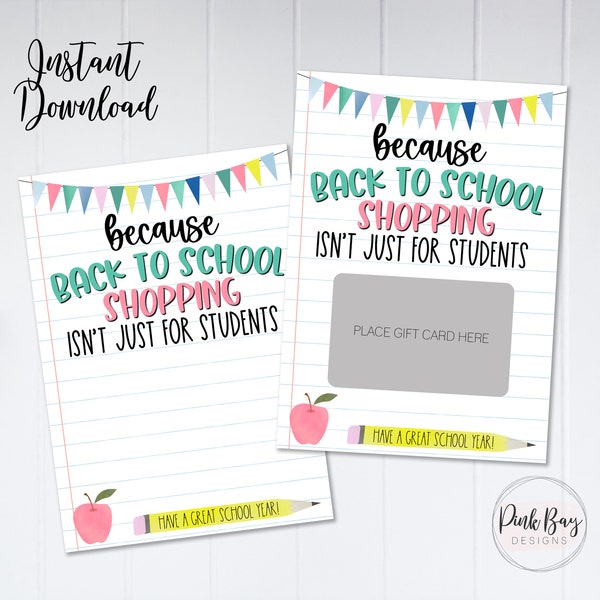 Instant
Download
because
BACK TO SCHOOL
SHOPPING
ISN'T JUST FOR STUDENTS
HAVE A GREAT SCHOOL YEAR!
because
BACK TO SCHOOL
SHOPPING
ISN'T JUST FOR STUDENTS
PLACE GIFT CARD HERE
HAVE A GREAT SCHOOL YEAR!
Pink Bay
DESIGNS